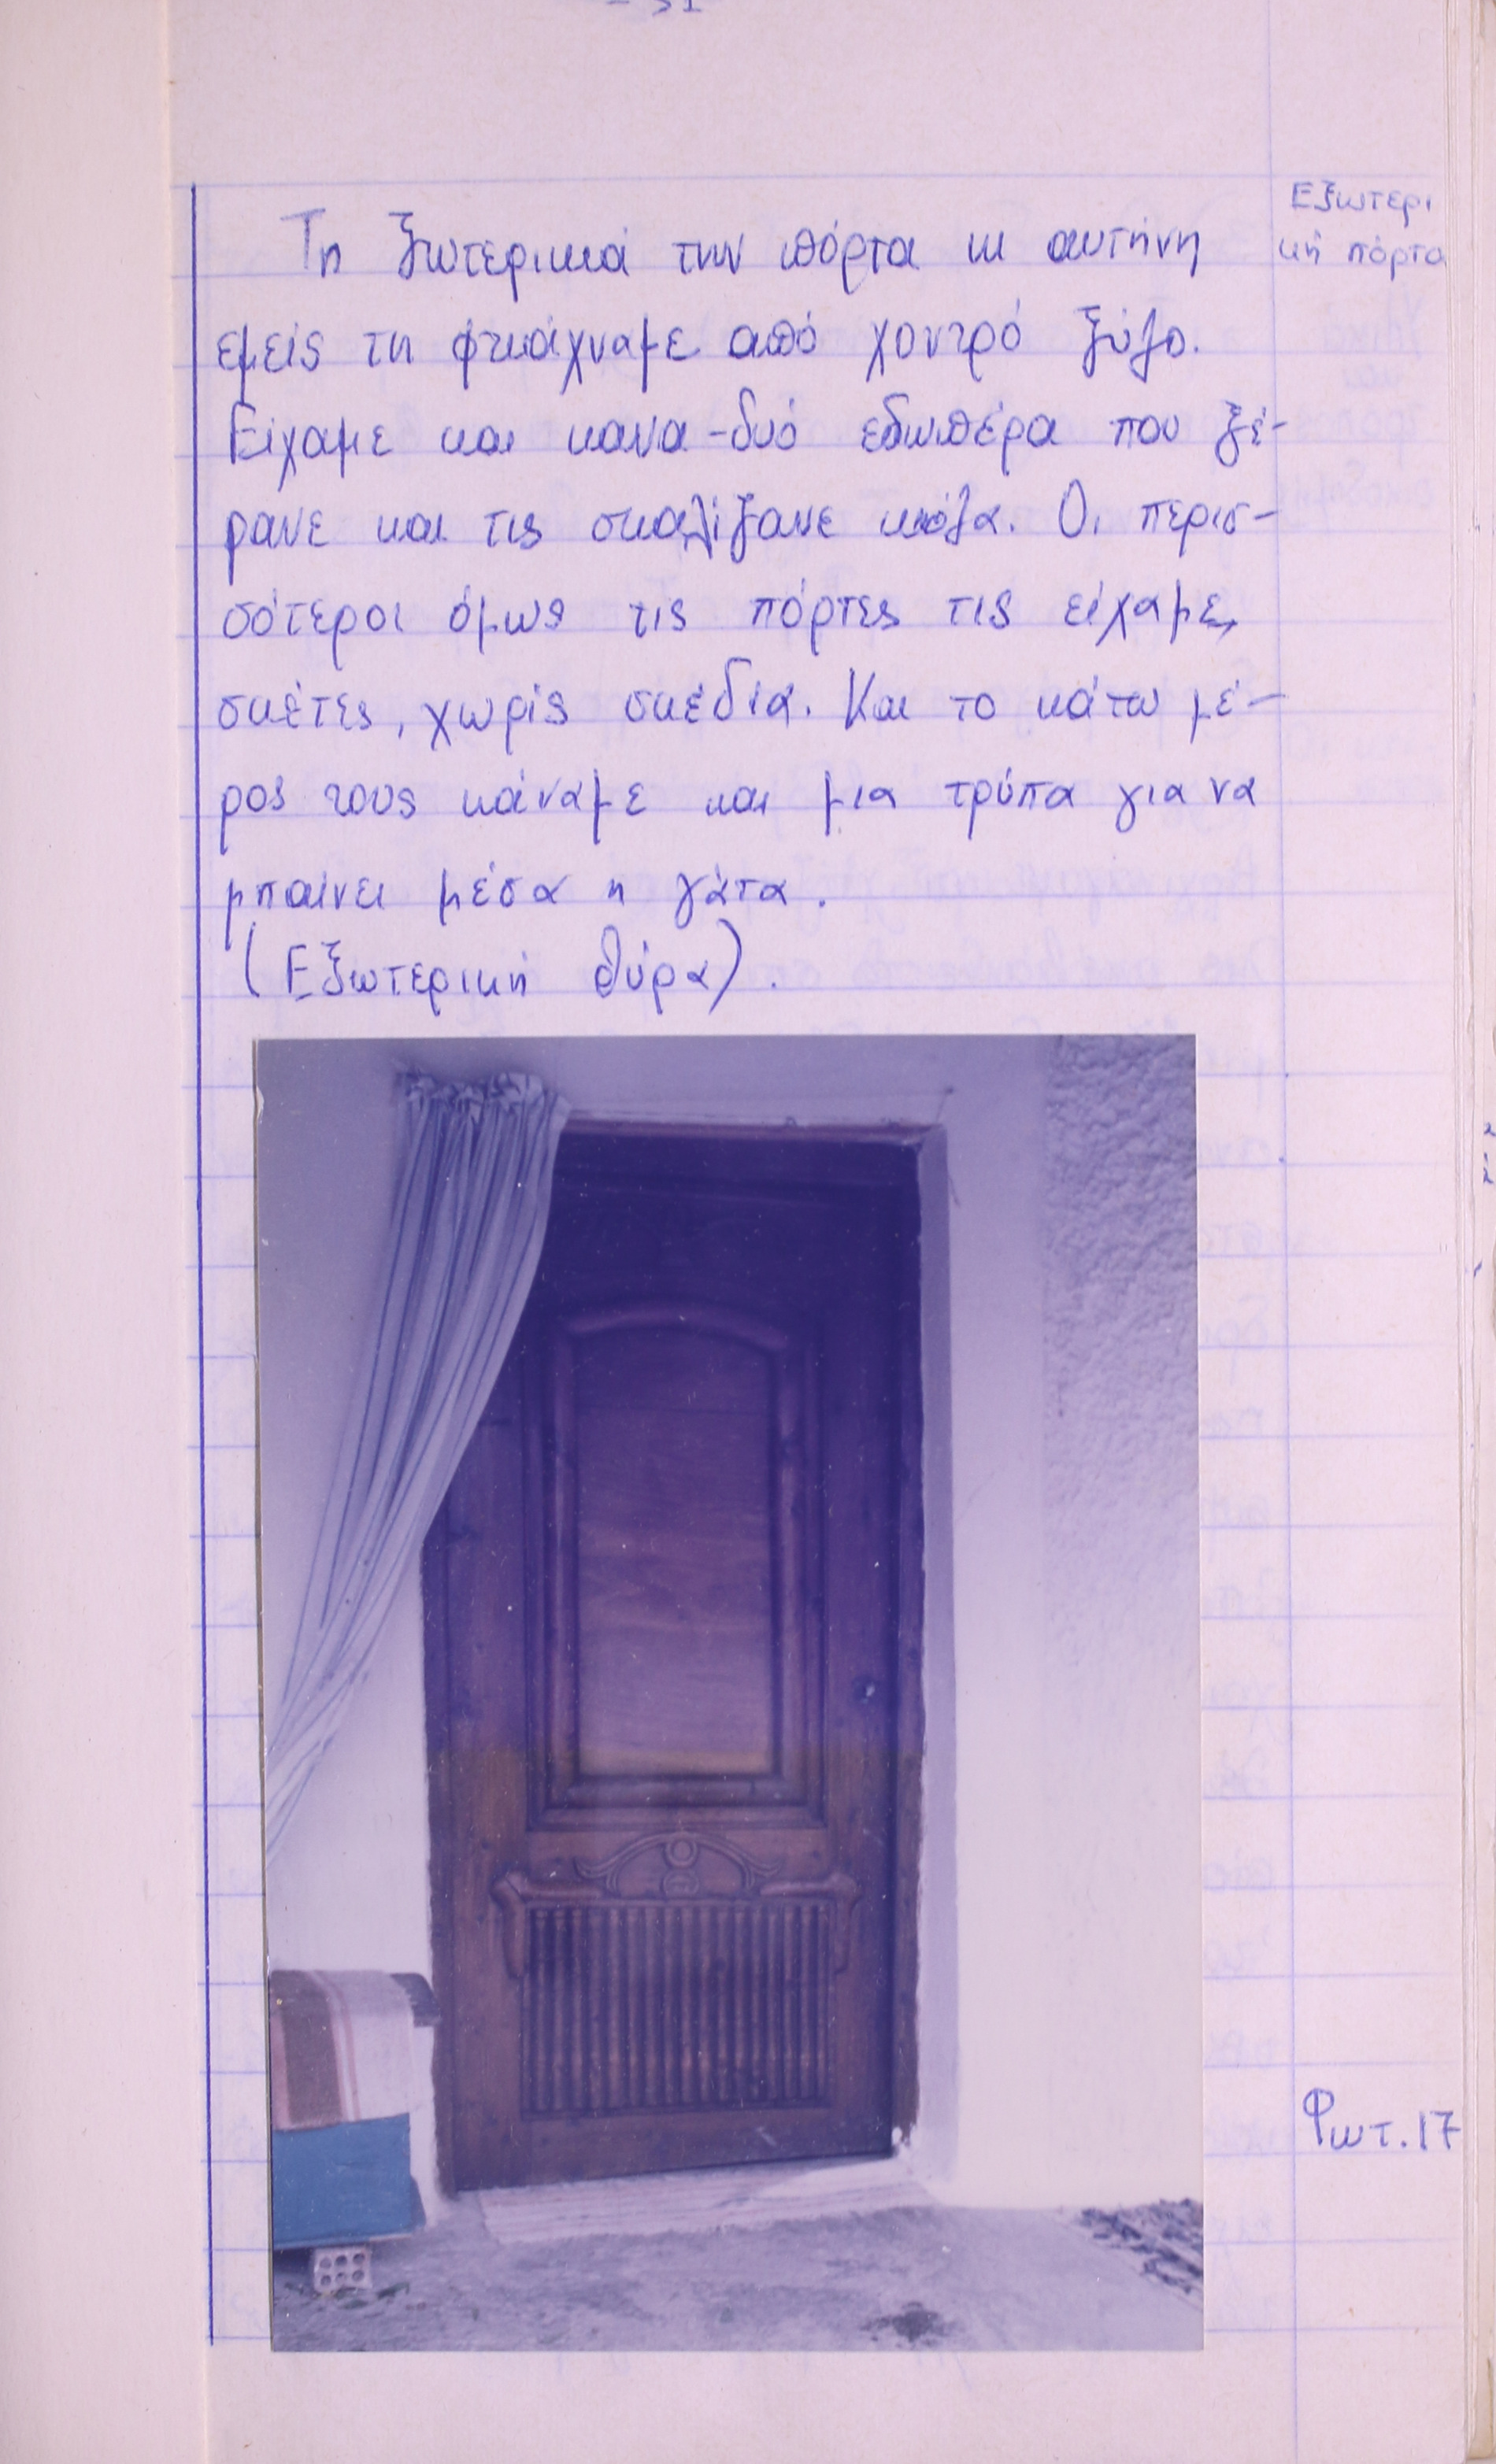 Τη ξωτερικιά την πόρτα κι αυτήνη
εμείς τη φτκιάχναμε από χοντρό ξύλο.
Είχαμε και κανα-δυό εδωπέρα που ξέ-
ρανε και τις σκαλίζανε κιόλα. Οι περισ-
σότεροι όμως τις πόρτες τις είχαμε,
σκέτες, χωρίς σκέδια. Και το κάτω μέ-
ρος τους κάναμε και μια τρύπα για να
μπαίνει μέσα η γάτα.
(Εξωτερική θύρα).
Εξωτερι
κή πόρτα
Φωτ.17